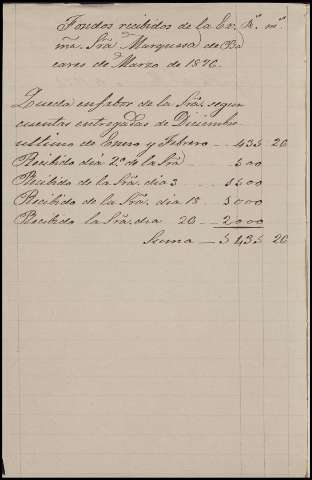 Fondos recibidos de la Ex.
ma. Sra. Marquesa de
cares de Marzo de 1876.
Queda en fabor de la Sra. segun
cuentas entregadas de Diciembre
ultimo de Enero y Febrero - 435 20
Recibido dia 2 de la Sra - 500
Recibido de la Sra. dia 3 -
Recibido de la Sra. dia 18 - 1000
Recibido la Sra. dia 20 - 2000
Suma - 5435 20